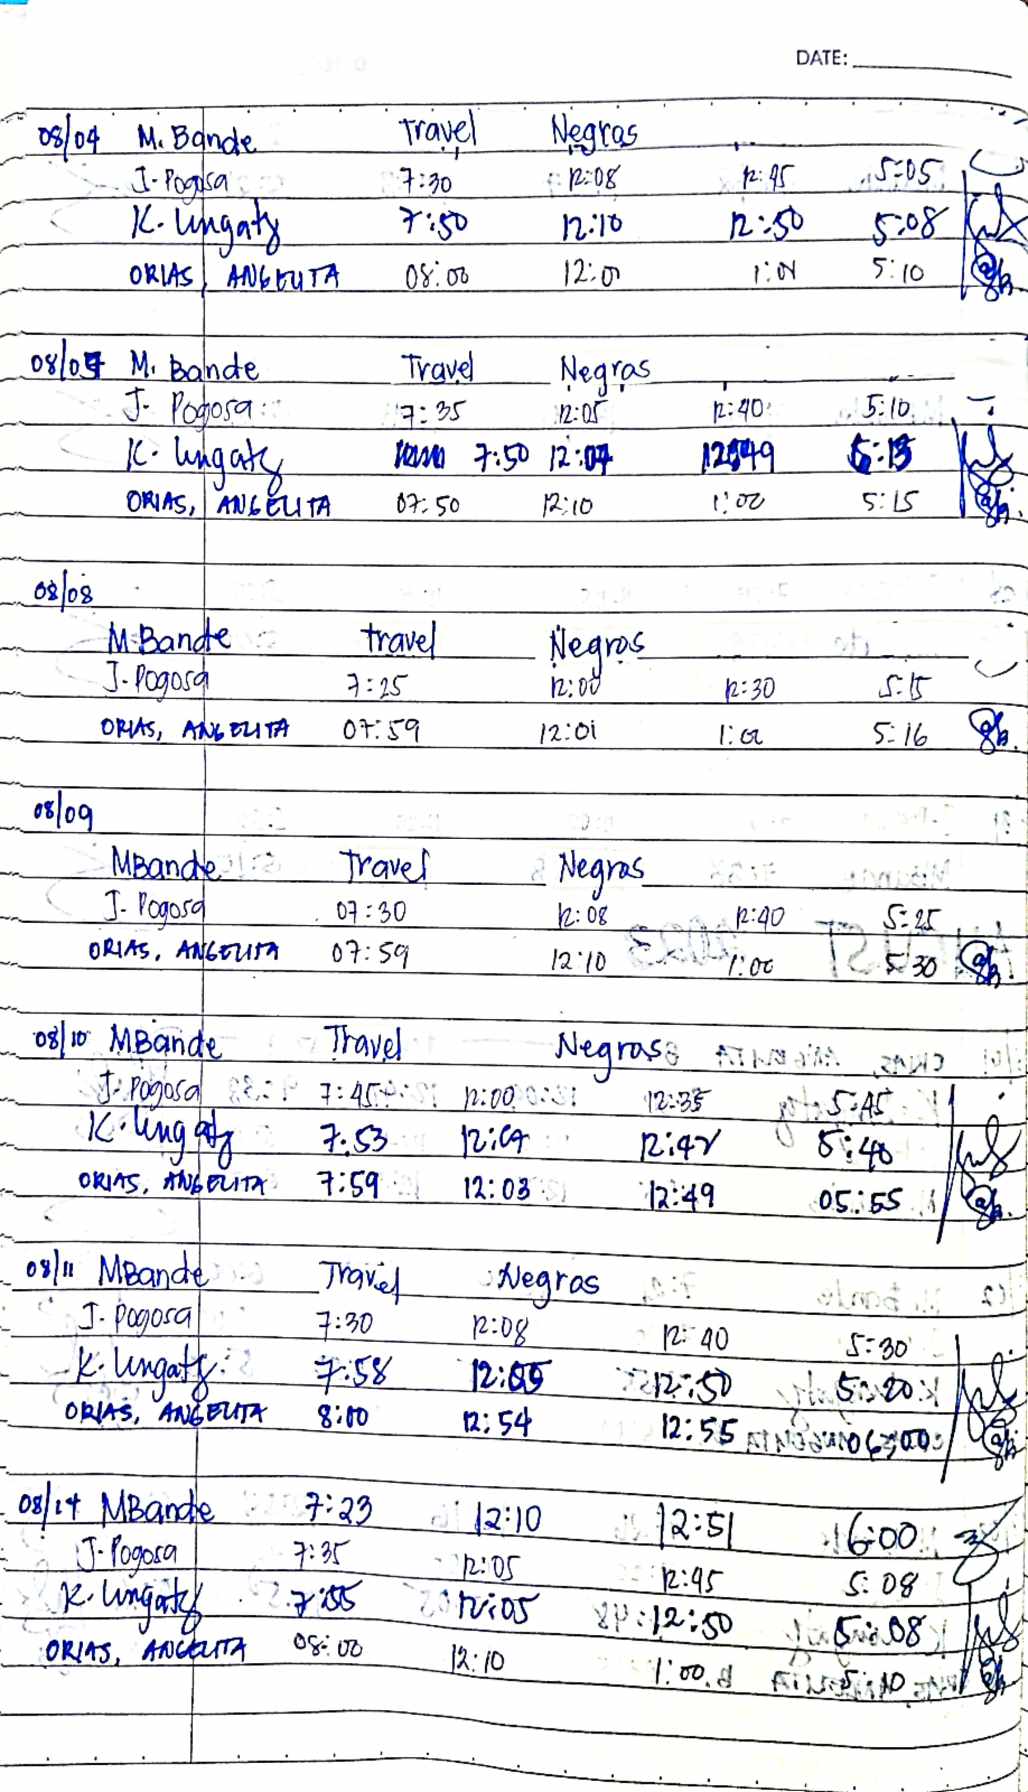 DATE:
08/04 M. Bande Travel Negras
J. Pogosa 7:30 12:08 12:45 5:05
K. Lingatz 7:50 12:10 12:50 5:08
ORIAS, ANGELITA 08:00 12:01 1:01 5:10
M. Bande Travel Negras
J. Pogosa 7:35 12:05 12:40 5:10
K. Lingatz 7:50 12:07 5:13
ORIAS, ANGELITA 07:50 12:10 1:00 5:15
08/08
M. Bande travel Negros
J. Pogosa 7:25 12:00 12:30 5:15
ORIAS, ANGELITA 07:59 12:01 5:16
08/09
MBande Travel Negras
J. Pogosa 07:30 12:08 12:40 5:25
ORIAS, ANGELITA 07:59 12:10 1:00 5:30
08/10 MBande Travel Negras
J. Pogosa 7:45 12:00 12:35 5:45
K. Lingatz 7:53 12:42 5:40
ORIAS, ANGELITA 7:59 12:03 12:49 05:55
08/11 MBande Travel Negras
J. Pogosa 7:30 12:08 12:40 5:30
K. Lingatz 7:58 12:05 12:50 5:20
ORIAS, ANGELITA 8:00 12:54 12:55 06:00
08/14 MBande 7:23 12:10 12:51 6:00
J. Pogosa 7:35 12:05 12:45 5:08
K. Lingatz 7:55 12:05 12:50 5:08
ORIAS, ANGELITA 08:00 12:10 1:00 5:10